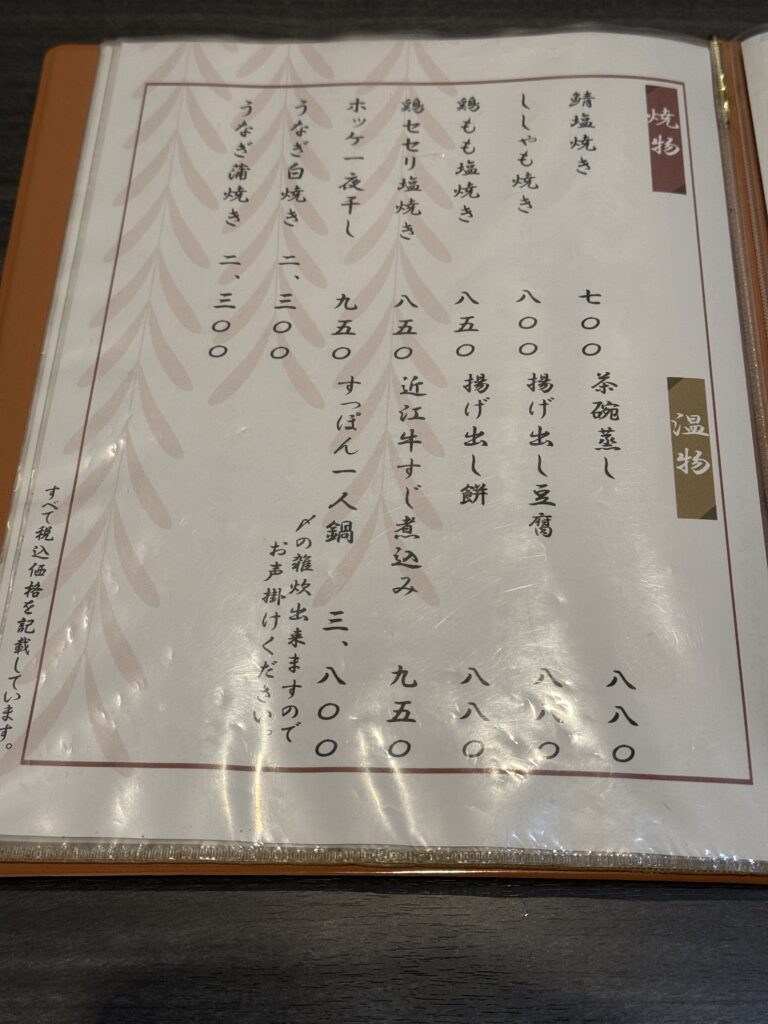 焼物
鯖塩焼き 七〇〇
ししゃも焼き 八〇〇
鶏もも塩焼き 八五〇
鶏セセリ塩焼き 八五〇
ホッケ一夜干し 九五〇
うなぎ白焼き 二、三〇〇
うなぎ蒲焼き 二、三〇〇
温物
茶碗蒸し 八八〇
揚げ出し豆腐 八八〇
揚げ出し餅 八八〇
近江牛すじ煮込み 九五〇
すっぽん一人鍋 三、八〇〇
〆の雑炊出来ますので
お声掛けください。
すべて税込価格を記載しています。